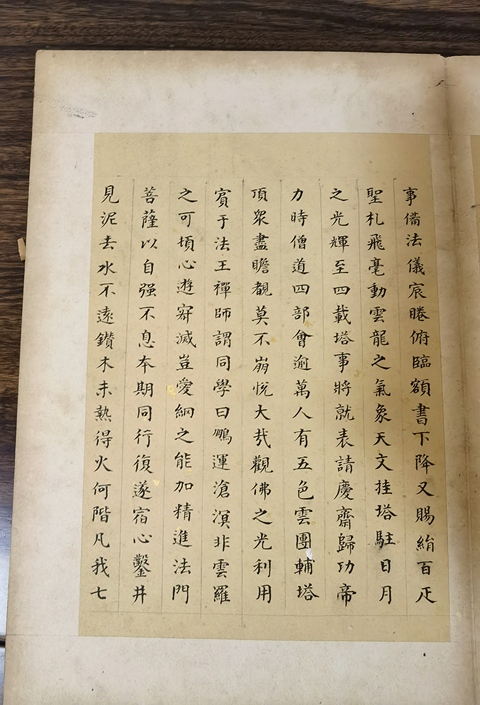 事備法儀宸睠俯臨額書下降又賜絹百疋
聖札飛毫動雲龍之氣象天文挂塔駐日月
之光輝至四載塔事將就表請慶齋歸功帝
力時僧道四部會逾萬人有五色雲團輔塔
頂眾盡瞻覩莫不崩悅大哉觀佛之光利用
賓于法王禪師謂同學曰鵬運滄溟非雲羅
之可頓心遊寂滅豈愛網之能加精進法門
菩薩以自强不息本期同行復遂宿心鑿井
見泥去水不遠鑽木未熱得火何階凡我七